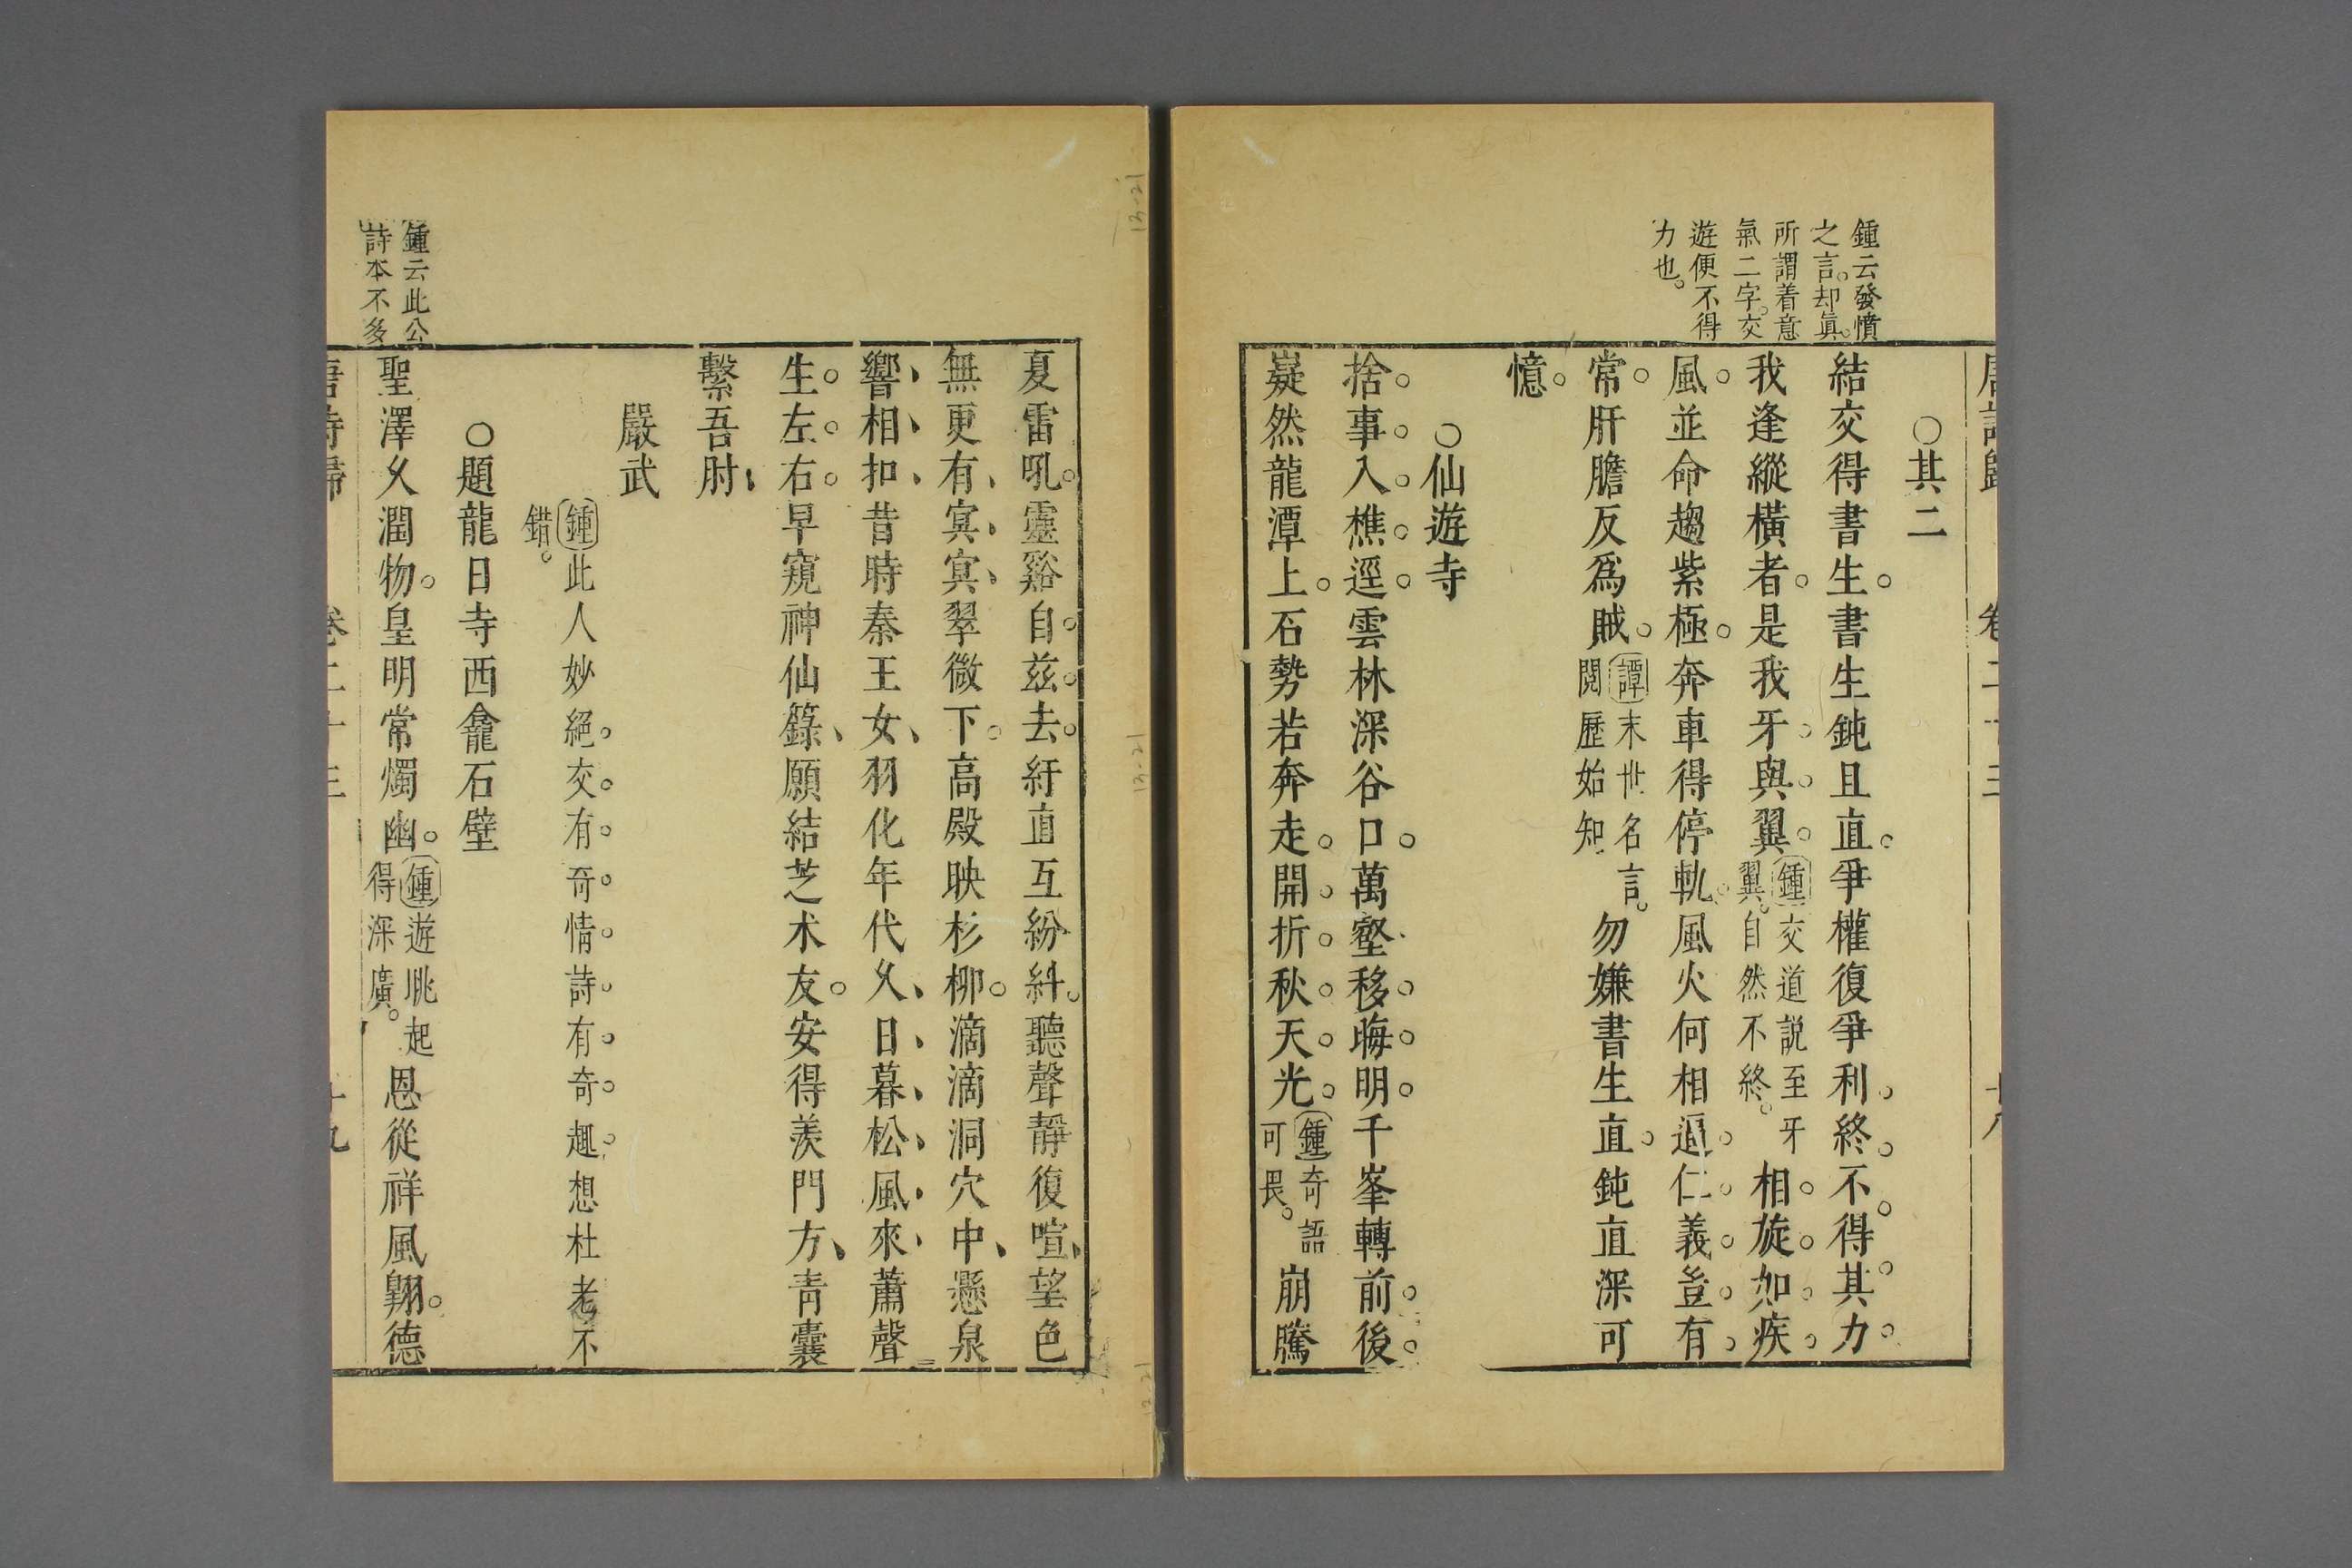 鍾云發憤
之言却眞
所謂着意
氣二字交
遊便不得
力也
○其二
結交得書生書生鈍且直爭權復爭利終不得其力
我逢縱橫者是我牙與翼
鍾交道説至牙
翼自然不終
相旋如疾
風並命趨紫極奔車得停軌風火何相逼仁義豈有
常肝膽反爲賊
譚末世名言
閱歷始知
勿嫌書生直鈍直深可
憶
○仙遊寺
捨事入樵逕雲林深谷口萬壑移晦明千峯轉前後
嶷然龍潭上石勢若奔走開折秋天光
鍾奇語
可畏
崩騰
夏雷吼靈谿自茲去紆直互紛糾聽聲靜復喧望色
無更有㝠㝠翠微下高殿映杉柳滴滴洞穴中懸泉
響相扣昔時秦王女羽化年代久日暮松風來蕭聲
生左右早窺神仙籙願結芝术友安得羨門方青囊
繫吾肘
嚴武
鍾此人妙絕交有奇情詩有奇趣想杜老不
錯
○題龍日寺西龕石壁
鍾云此公
詩本不多
聖澤久潤物皇明常燭幽
鍾遊眺起
得深廣
恩從祥風翺德
唐詩歸 卷二十三 十九